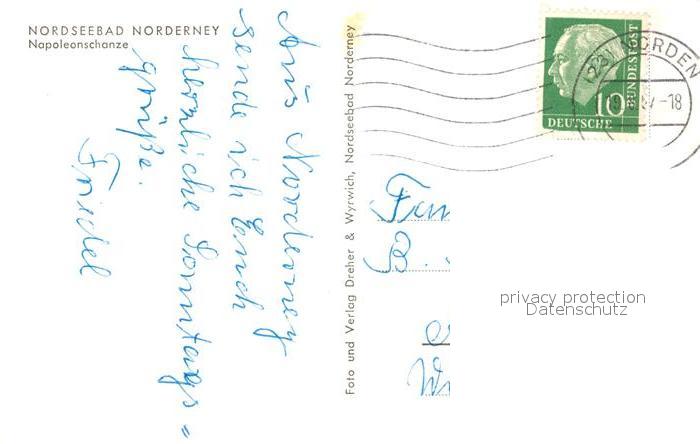 NORDSEEBAD NORDERNEY
Napoleonschanze
Aus Norderney
sende ich Euch
herzliche Sonntags =
grüße.
Friedel
Foto und Verlag Dreher & Wyrwich, Nordseebad Norderney
NORDEN
-18
10
DEUTSCHE
BUNDESPOST
Fam
B.
privacy protection
Datenschutz